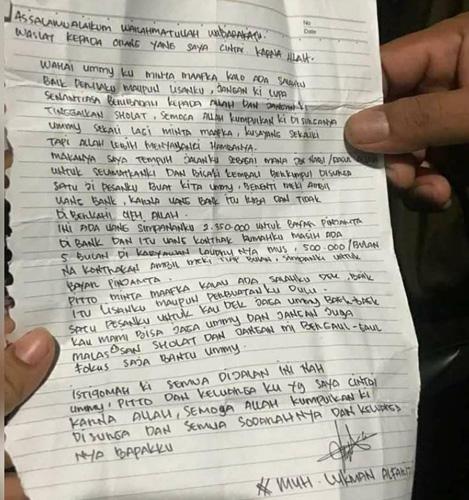 ASSALAMUALAIKUM WARAHMATULLAH WABARAKATU.
No
Date
WASIAT KEPADA ORANG YANG SAYA CINTAI KARNA ALLAH.
WAHAI UMMY KU MINTA MAAFKA KALO ADA SALAHKU
BAIK PERILAKU MAUPUN LISANKU, JANGAN KI LUPA
SENANTIASA BERIBADAH KEPADA ALLAH DAN JANGAN KI
TINGGALKAN SHOLAT, SEMOGA ALLAH KUMPULKAN KI DI SURGANYA
UMMY SEKALI LAGI MINTA MAAFKA, KUSAYANG SEKALIKI
TAPI ALLAH LEBIH MENYAYANGI HAMBANYA.
MAKANYA SAYA TEMPUH JALANKU SEBAGAI MANA NABI/RASUL ALLAH
UNTUK SELAMATKANKI DAN BISAKI KEMBALI BERKUMPUL DISURGA
SATU JI PESANKU BUAT KITA UMMY, BERENTI MEKI AMBIL
UANG BANK, KARNA UANG BANK ITU RIBA DAN TIDAK
DI BERKAHI OLEH ALLAH.
INI ADA UANG SIMPANANKU 2.350.000 UNTUK BAYAR PINJAMTA
DI BANK DAN ITU UANG KONTRAK RUMAHKU MASIH ADA
5 BULAN DI MUS, 500.000/BULAN
NA KONTRAKAN AMBIL MEKI TIAP BULAN, SIMPANKI UNTUK
BAYAR PINJAMTA.
PITTO, MINTA MAAFKA KALAU ADA SALAHKU DEK, BAIK
ITU LISANKU MAUPUN PERBUATANKU DULU.
SATU PESANKU UNTUK KAU DEK JAGA UMMY BAEK-BAEK
KAU MAMI BISA JAGA UMMY DAN JANGAN JUGA
MALAS SHOLAT DAN JANGAN MI BERGAUL-GAUL
FOKUS SAJA BANTU UMMY.
ISTIQOMAH KI SEMUA DIJALAN INI NAH
UMMY, PITTO DAN KELUARGA KU YG SAYA CINTAI
KARNA ALLAH, SEMOGA ALLAH KUMPULKAN KI
DI SURGA DAN SEMUA SODARAHNYA DAN KELUARGA
NYA BAPAKKU
MUH. LUKMAN ALFARIZ